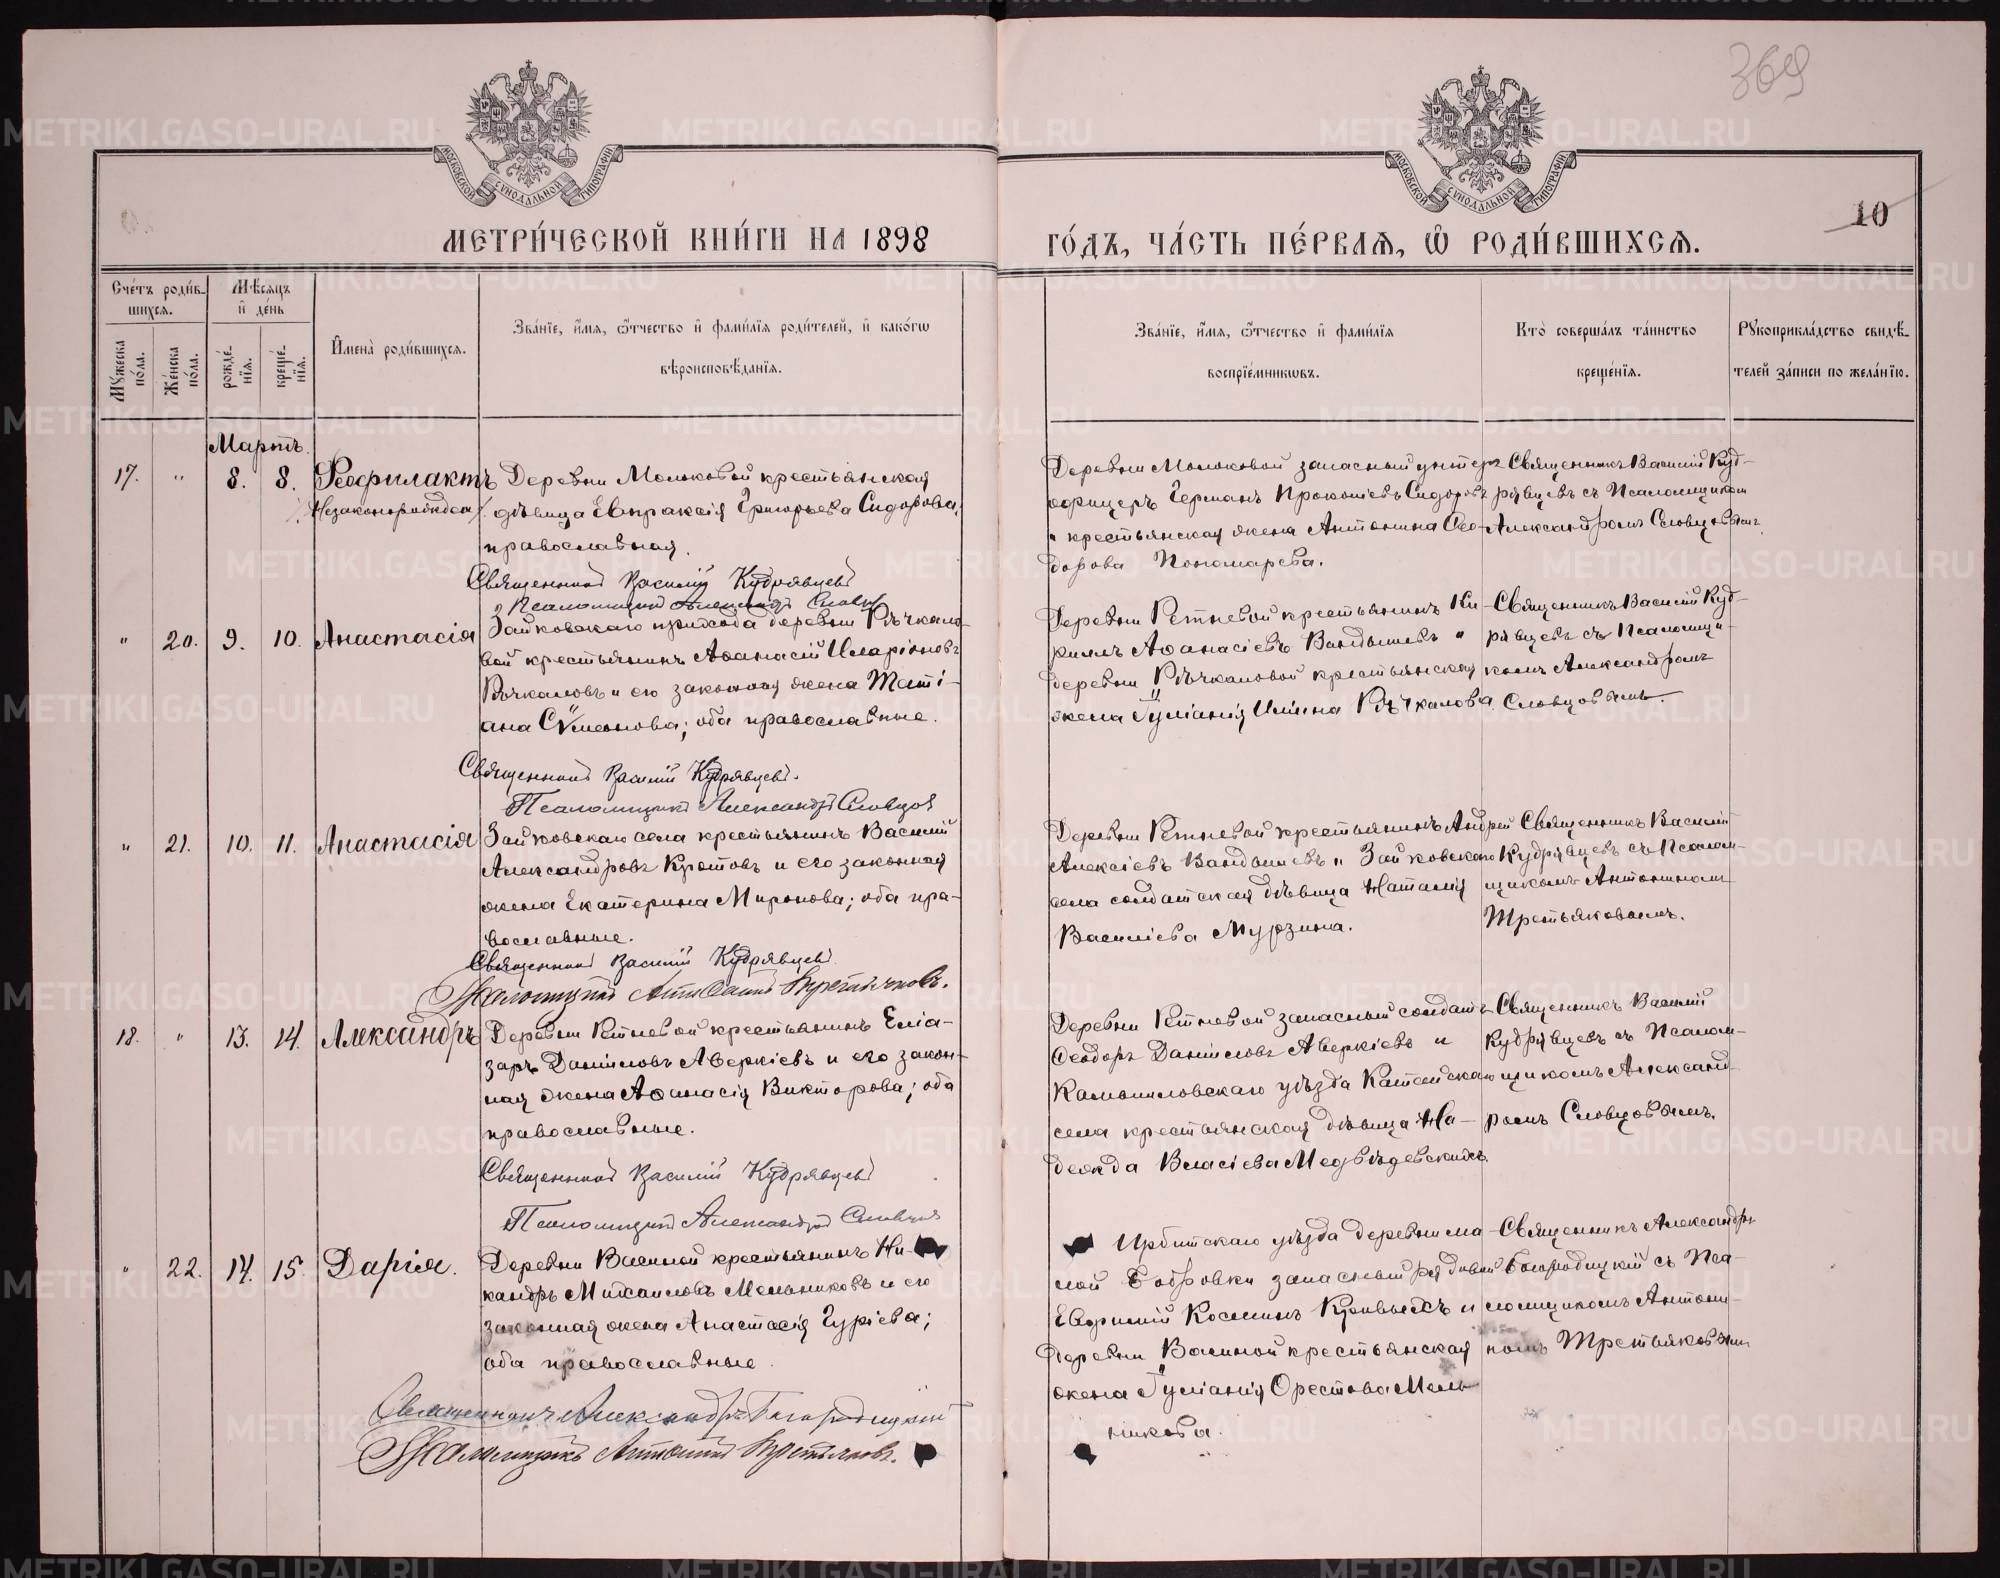 369
МОСКОВСКОЙ СѴНОДАЛЬНОЙ ТИПОГРАФІИ
МОСКОВСКОЙ СѴНОДАЛЬНОЙ ТИПОГРАФІИ
10
МЕТРИ́ЧЕСКОЙ КНИ́ГИ НА 1898
ГО́ДЪ, ЧА́СТЬ ПЕ́РВАѦ, Ѽ РОДИ́ВШИХСѦ.
Сче́тъ роди́в-
шихся.
Мѣ́сяцъ
и де́нь
Му́жеска по́ла.
Же́нска по́ла.
рожде́-
нїя.
креще́-
нїя.
И҆мена̀ роди́вшихся.
Зва́нїе, и҆́мя, ѻ҆́тчество и҆ фами́лїя роди́телей, и҆ како́гѡ
вѣроисповѣ́данїя.
Зва́нїе, и҆́мя, ѻ҆́тчество и҆ фами́лїя
воспрїе́мникѡвъ.
Кто̀ соверша́лъ та́инство
креще́нїя.
Рукоприкла́дство свидѣ́-
телей за́писи по жела́нїю.
Мартъ.
17. " 8. 8. Феофилактъ
/Незаконорожден/
Деревни Молоковой крестьянская
дѣвица Евпраксія Григорьева Сидорова,
православная.
Священникъ Василій Кудрявцевъ
Псаломщикъ Александръ Словцовъ
Деревни Молоковой запасный унтеръ
офицеръ Германъ Прокопіевъ Сидоровъ
и крестьянская жена Антонина Ѳео-
дорова Пономарева.
Священникъ Василій Куд-
рявцевъ съ Псаломщикомъ
Александромъ Словцовымъ.
" 20. 9. 10. Анастасія
Зайковскаго прихода деревни Рѣчкало-
вой крестьянинъ Аѳанасій Иларіоновъ
Рѣчкаловъ и его законная жена Таті-
ана Сѵмеонова; оба православные.
Священникъ Василій Кудрявцевъ.
Псаломщикъ Александръ Словцовъ
Деревни Ретневой крестьянинъ Ки-
риллъ Аѳанасіевъ Вандышевъ и
деревни Рѣчкаловой крестьянская
жена Іуліанія Ильина Рѣчкалова.
Священникъ Василій Куд-
рявцевъ съ Псаломщи-
комъ Александромъ
Словцовымъ.
" 21. 10. 11. Анастасія
Зайковскаго села крестьянинъ Василій
Александровъ Кротовъ и его законная
жена Екатерина Миронова; оба пра-
вославные.
Священникъ Василій Кудрявцевъ
Псаломщикъ Антонинъ Третьяковъ.
Деревни Ретневой крестьянинъ Андрей
Алексіевъ Вандышевъ и Зайковскаго
села солдатская дѣвица Наталія
Василіева Мурзина.
Священникъ Василій
Кудрявцевъ съ Псалом-
щикомъ Антониномъ
Третьяковымъ.
18. " 13. 14. Александръ
Деревни Ретневой крестьянинъ Еліа-
заръ Даніиловъ Аверкіевъ и его закон-
ная жена Аѳанасія Викторова; оба
православные.
Священникъ Василій Кудрявцевъ
Псаломщикъ Александръ Словцовъ
Деревни Ретневой запасный солдатъ
Ѳеодоръ Даніиловъ Аверкіевъ и
Камышловскаго уѣзда Катайскаго
села крестьянская дѣвица На-
дежда Власіева Медвѣдевскихъ.
Священникъ Василій
Кудрявцевъ съ Псалом-
щикомъ Александ-
ромъ Словцовымъ.
" 22. 14. 15. Дарія.
Деревни Васиной крестьянинъ Ни-
кандръ Михаиловъ Мельниковъ и его
законная жена Анастасія Гуріева;
оба православные.
Священникъ Александръ Богородицкій
Псаломщикъ Антонинъ Третьяковъ.
Ирбитскаго уѣзда деревни ма-
лой Бобровки запасный рядовой
Евфимій Косминъ Кривыхъ и
деревни Васиной крестьянская
жена Іуліанія Орестова Мель-
никова.
Священникъ Александръ
Богородицкій съ Пса-
ломщикомъ Антони-
номъ Третьяковымъ
METRIKI.GASO-URAL.RU